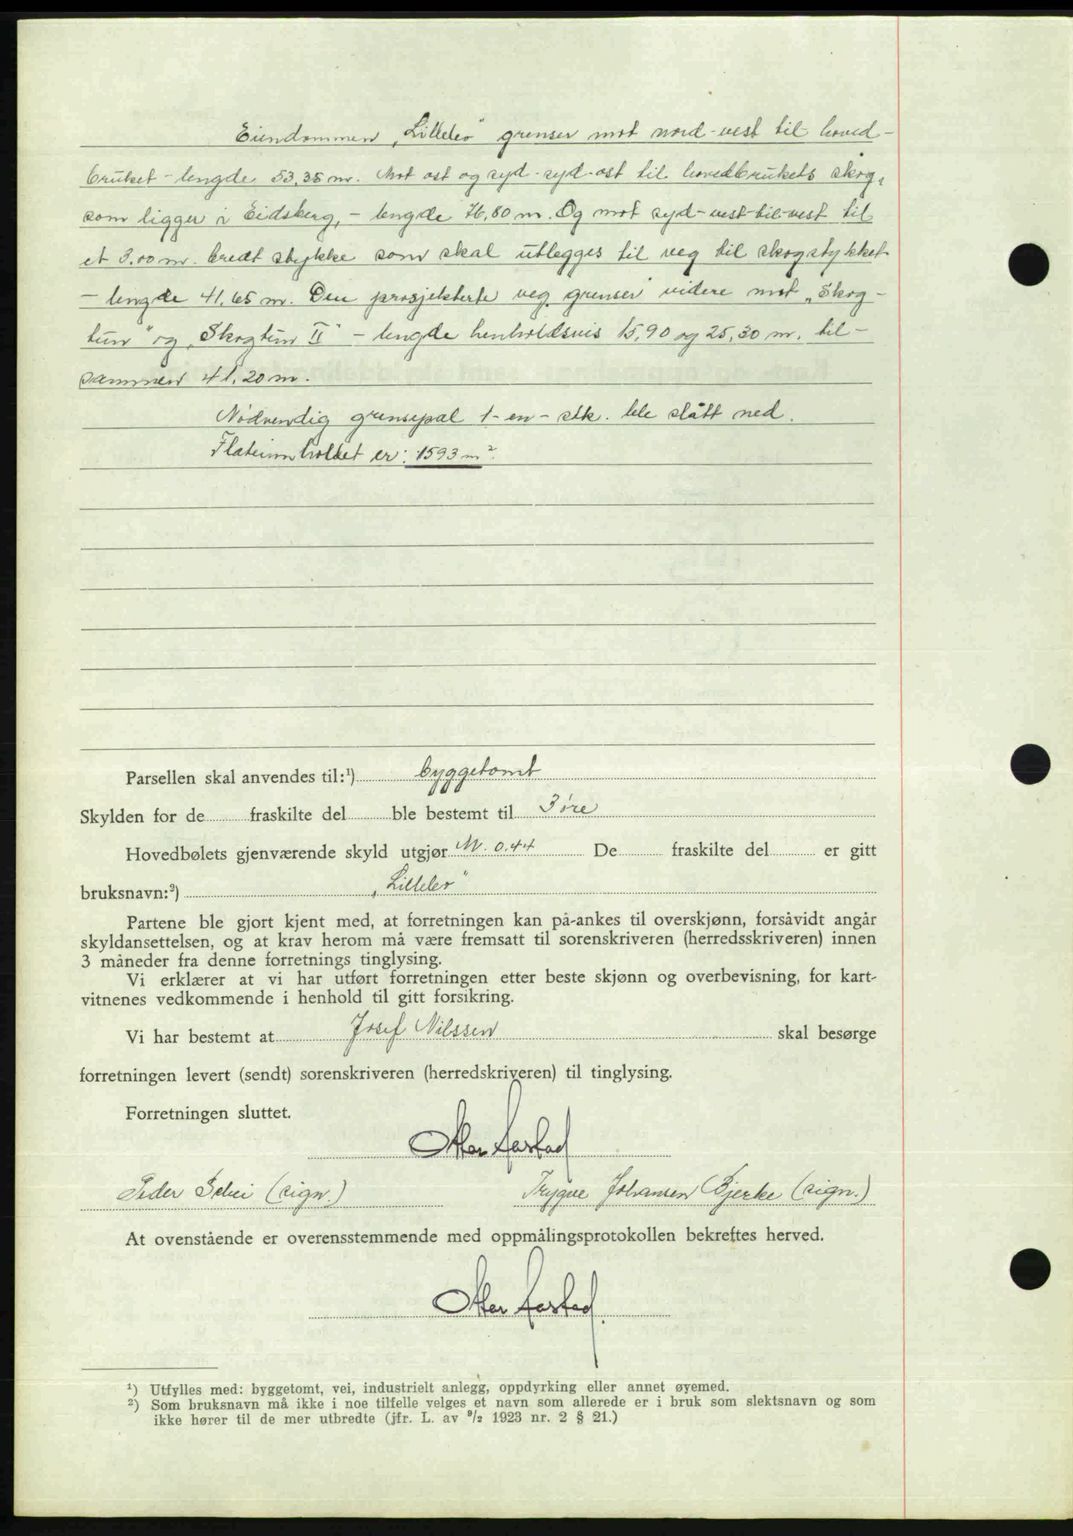 Eiendommen „Lillelev" grenser mot nord-vest til hoved-
bruket - lengde 53,35 m. Mot ost og syd-syd-ost til hovedbrukets skog,
som ligger i Eidsberg, - lengde 76,80 m. Og mot syd-vest-til-vest til
et 3.00 m. bredt stykke som skal utlegges til veg til skogstykket
- lengde 41,65 m. Den prosjekterte veg grenser videre mot „Skog-
tun" og „Skogtun II" - lengde henholdsvis 15,90 og 25,30 m. til-
sammen 41,20 m.
Nødvendig grensepæl 1 - en - stk. ble slått ned.
Flateinnholdet er: 1593 m².
Parsellen skal anvendes til:¹) byggetomt
Skylden for de fraskilte del ble bestemt til 3 øre
Hovedbølets gjenværende skyld utgjør M. 0.44 De fraskilte del er gitt
bruksnavn:²) „Lillelev"
Partene ble gjort kjent med, at forretningen kan på-ankes til overskjønn, forsåvidt angår
skyldansettelsen, og at krav herom må være fremsatt til sorenskriveren (herredsskriveren) innen
3 måneder fra denne forretnings tinglysing.
Vi erklærer at vi har utført forretningen etter beste skjønn og overbevisning, for kart-
vitnenes vedkommende i henhold til gitt forsikring.
Vi har bestemt at Josef Nilssen skal besørge
forretningen levert (sendt) sorenskriveren (herredskriveren) til tinglysing.
Forretningen sluttet.
Aastad
Peder (sign.) Trygve Johansen Bjerke (sign.)
At ovenstående er overensstemmende med oppmålingsprotokollen bekreftes herved.
Aastad.
¹) Utfylles med: byggetomt, vei, industrielt anlegg, oppdyrking eller annet øyemed.
²) Som bruksnavn må ikke i noe tilfelle velges et navn som allerede er i bruk som slektsnavn og som
ikke hører til de mer utbredte (jfr. L. av ⁹/₂ 1923 nr. 2 § 21.)